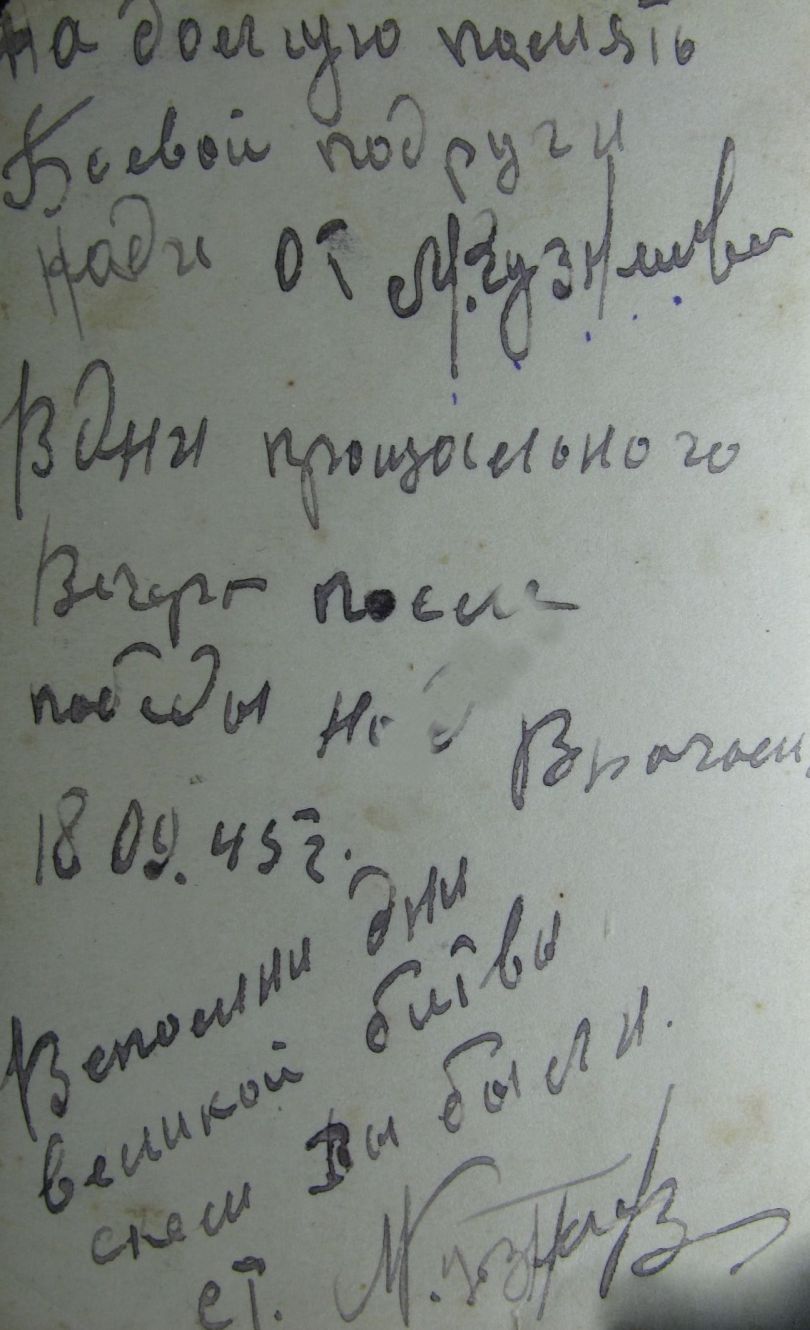 На долгую память
Боевой подруги
Нади от М.
В дни прощального
Вечера после
победы
Врагом
18 09. 45 г.
Вспомни дни
великой битвы
скем Вы были.
ст. М.